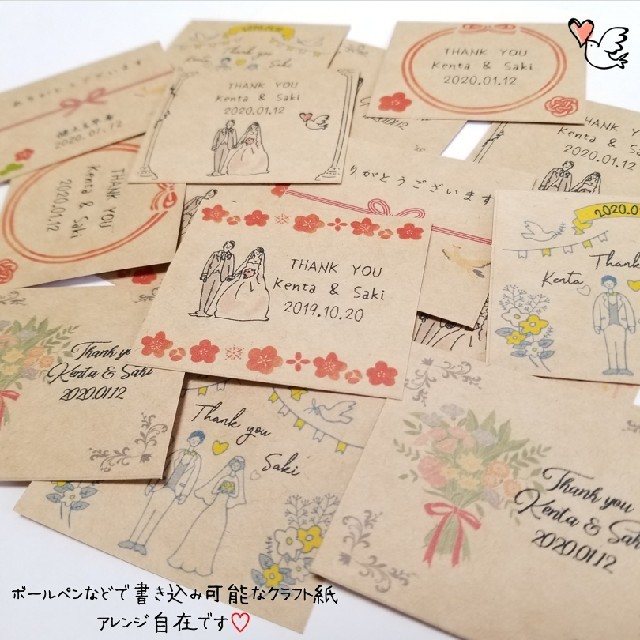 Thank you
THANK YOU
Kenta & Saki
2020.01.12
THANK YOU
Kenta & Saki
2020.01.12
ありがとうございます
2020.01.12
THANK YOU
Kenta & Saki
2020.01.12
THANK YOU
Kenta & Saki
2020.01.12
りがとうございます
THANK YOU
Kenta & Saki
2019.10.20
2020.0
Thank
Kenta
Thank you
Kenta & Saki
2020.01.12
Thank you
Saki
Thank you
Kenta & Saki
2020.01.12
ボールペンなどで書き込み可能なクラフト紙
アレンジ自在です♡